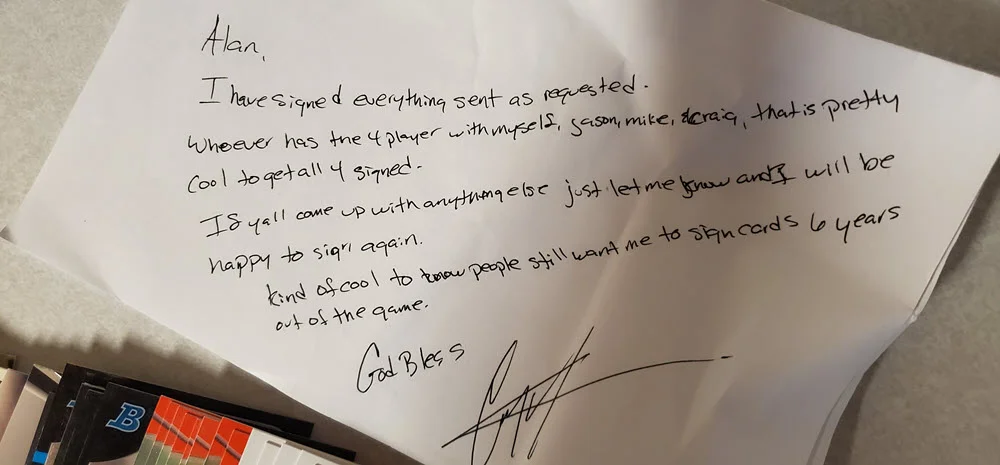 Alan,
I have signed everything sent as requested.
Whoever has the 4 player with myself, Jason, mike, & craig, that is pretty
cool to get all 4 signed.
If yall come up with anything else just let me know and I will be
happy to sign again.
kind of cool to know people still want me to sign cards 6 years
out of the game.
God Bless
B